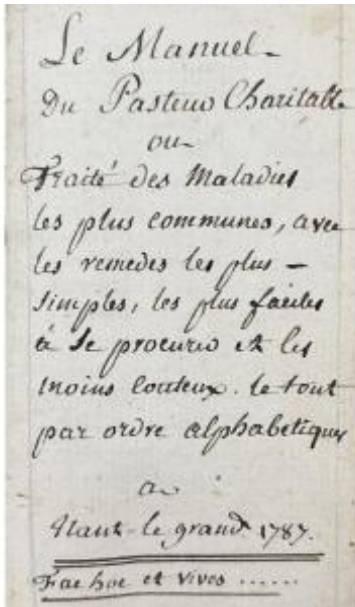 Le Manuel
Du Pasteur Charitable
ou
Traité des Maladies
les plus communes, avec
les remedes les plus -
simples, les plus faciles
à se procurer et les
moins couteux. le tout
par ordre alphabetique
a
Nant-le grand 1787.
Fac hoc et vives ......